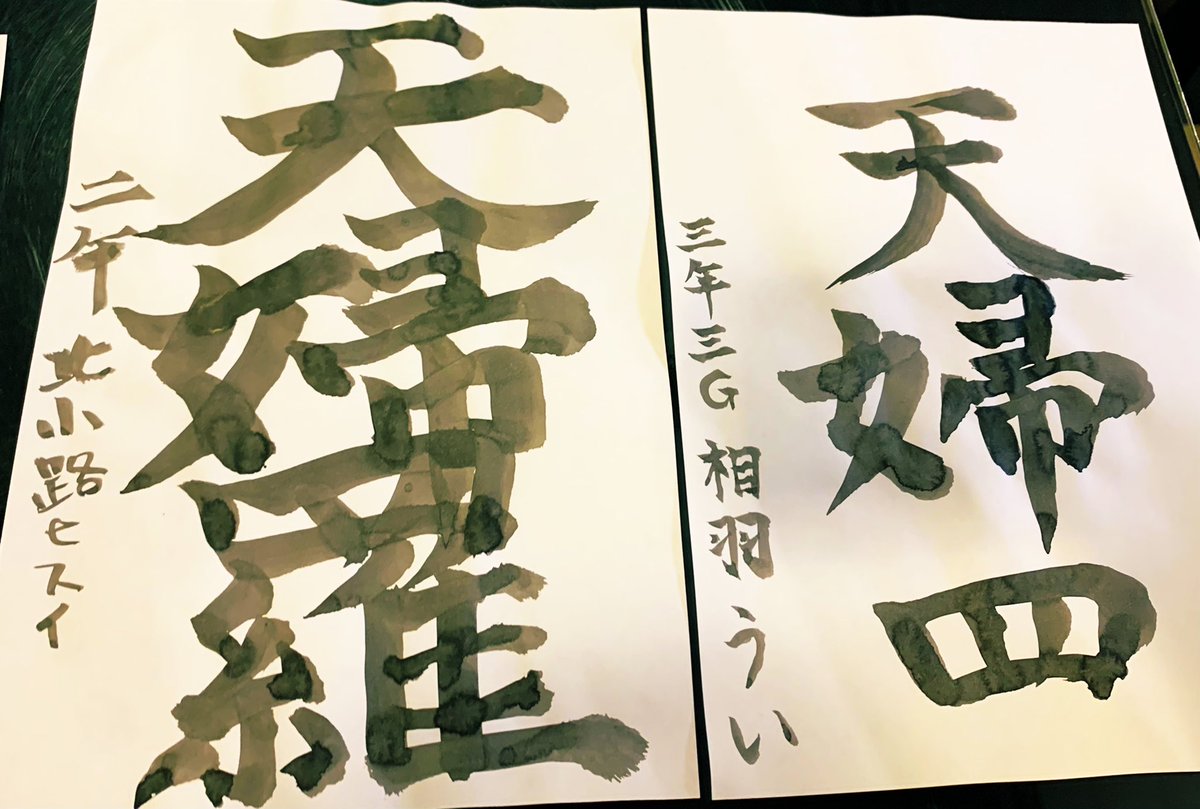 天婦四
三年三G 相羽うい
天婦羅
二年 北小路ヒスイ